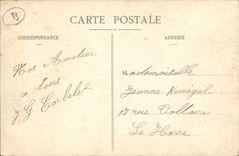 B
CARTE POSTALE
CORRESPONDANCE
ADRESSE
Nos Amitiés
à tous
G. Corbelet
Mademoiselle
Jeanne Kunigel
12 rue Voltaire
Le Havre